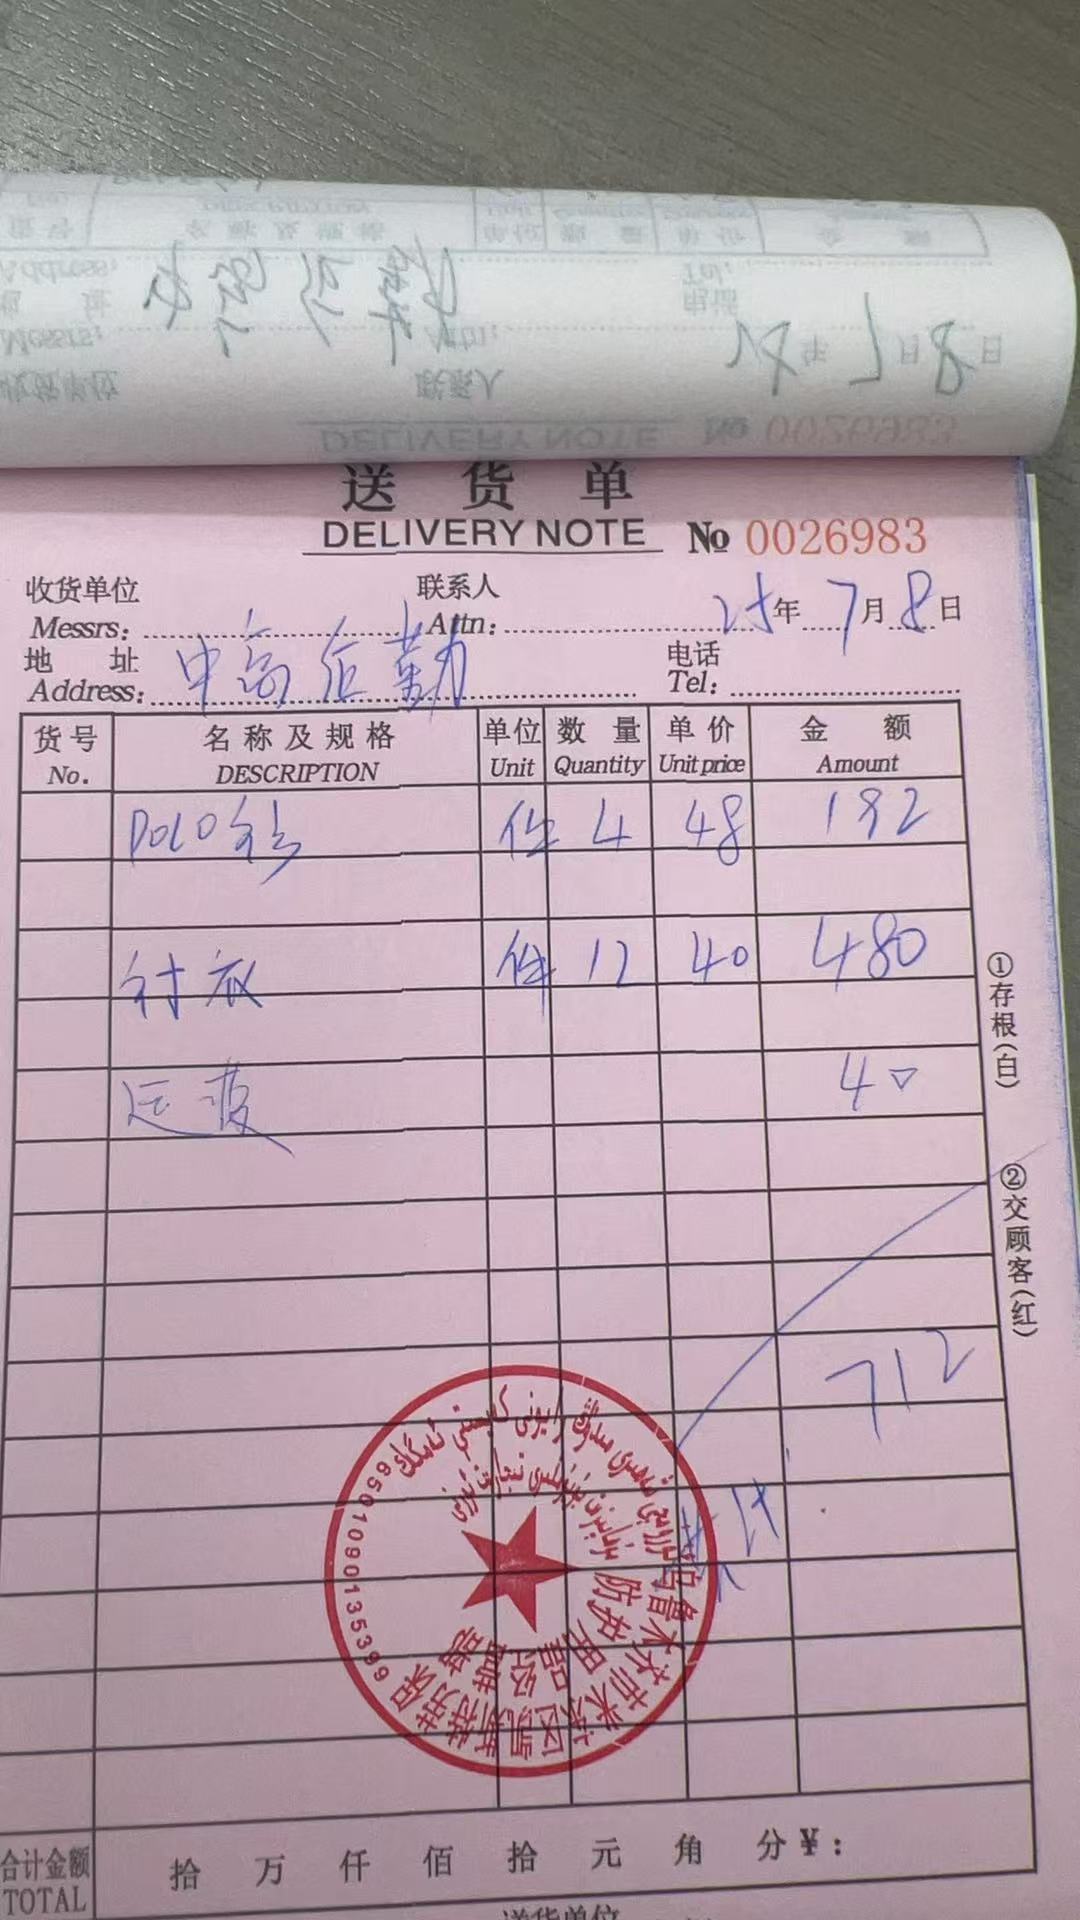 送货单
DELIVERY NOTE No 0026983
收货单位 联系人
Messrs: Attn: 25年 7月 8日
地址 中高后勤 电话
Address: Tel:
货号 名称及规格 单位 数量 单价 金额
No. DESCRIPTION Unit Quantity Unit price Amount
POLO衫 件 4 48 192
衬衣 件 12 40 480
运费 40
712
①存根(白)
②交顾客(红)
6501090135399
合计金额 拾 万 仟 佰 拾 元 角 分 ¥:
TOTAL
送货单位